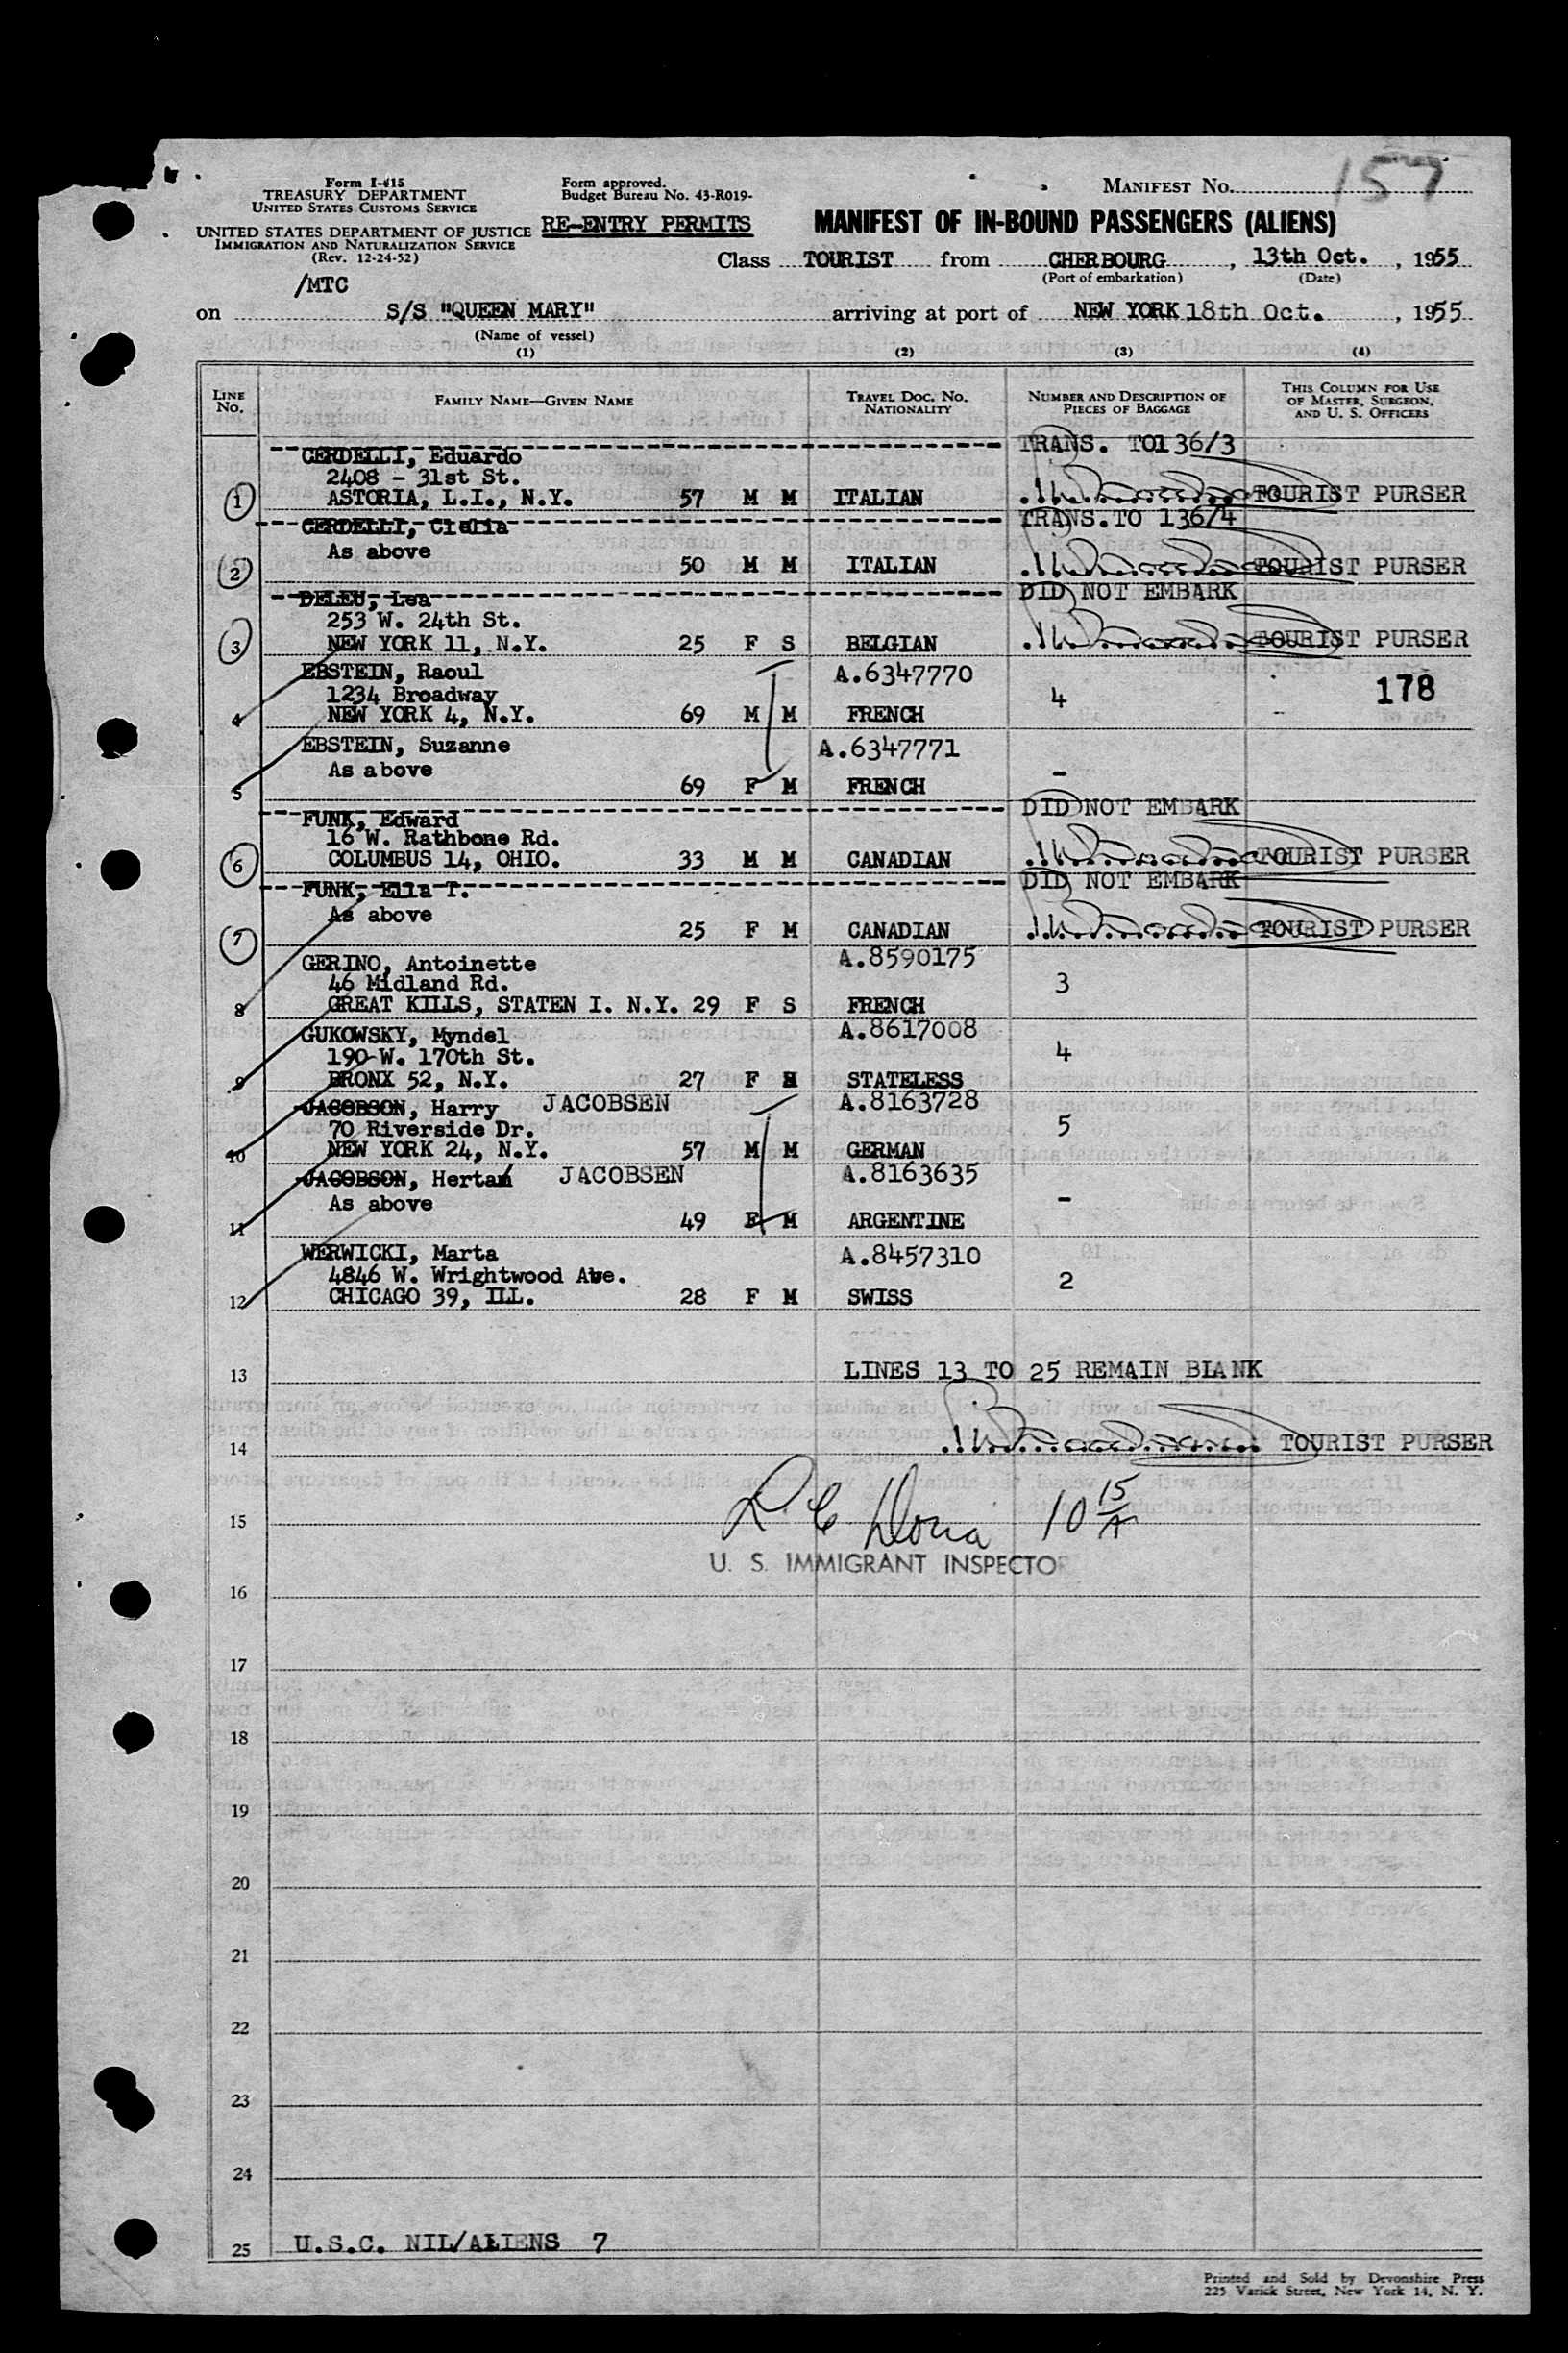 Form I-415
TREASURY DEPARTMENT
UNITED STATES CUSTOMS SERVICE
UNITED STATES DEPARTMENT OF JUSTICE
IMMIGRATION AND NATURALIZATION SERVICE
(Rev. 12-24-52)
Form approved.
Budget Bureau No. 43-R019-
RE-ENTRY PERMITS
MANIFEST NO. 157
MANIFEST OF IN-BOUND PASSENGERS (ALIENS)
Class TOURIST from CHERBOURG, 13th Oct., 1955
(Port of embarkation) (Date)
/MTC
on S/S "QUEEN MARY" arriving at port of NEW YORK 18th Oct., 1955
(Name of vessel)
(1) (2) (3) (4)
LINE NO. FAMILY NAME—GIVEN NAME TRAVEL DOC. NO. NATIONALITY NUMBER AND DESCRIPTION OF PIECES OF BAGGAGE THIS COLUMN FOR USE OF MASTER, SURGEON, AND U. S. OFFICERS
CERDELLI, Eduardo TRANS. TO 136/3
2408 - 31st St.
1 ASTORIA, L.I., N.Y. 57 M M ITALIAN TOURIST PURSER
CERDELLI, Clelia TRANS.TO 136/4
As above
2 50 M M ITALIAN TOURIST PURSER
DELEU, Lea DID NOT EMBARK
253 W. 24th St.
3 NEW YORK 11, N.Y. 25 F S BELGIAN TOURIST PURSER
EBSTEIN, Raoul A.6347770
1234 Broadway 4 178
4 NEW YORK 4, N.Y. 69 M M FRENCH
EBSTEIN, Suzanne A.6347771
As above -
5 69 F M FRENCH
FUNK, Edward DID NOT EMBARK
16 W. Rathbone Rd.
6 COLUMBUS 14, OHIO. 33 M M CANADIAN TOURIST PURSER
FUNK, Ella T. DID NOT EMBARK
As above
7 25 F M CANADIAN TOURIST PURSER
GERINO, Antoinette A.8590175
46 Midland Rd. 3
8 GREAT KILLS, STATEN I. N.Y. 29 F S FRENCH
GUKOWSKY, Myndel A.8617008
190 W. 170th St. 4
9 BRONX 52, N.Y. 27 F STATELESS
JACOBSON, Harry JACOBSEN A.8163728
70 Riverside Dr. 5
10 NEW YORK 24, N.Y. 57 M M GERMAN
JACOBSON, Herta JACOBSEN A.8163635
As above -
11 49 F M ARGENTINE
WERWICKI, Marta A.8457310
4846 W. Wrightwood Ave. 2
12 CHICAGO 39, ILL. 28 F M SWISS
13 LINES 13 TO 25 REMAIN BLANK
14 TOURIST PURSER
15 10 15/A
U. S. IMMIGRANT INSPECTOR
16
17
18
19
20
21
22
23
24
25 U.S.C. NIL/ALIENS 7
Printed and Sold by Devonshire Press
225 Varick Street, New York 14, N. Y.